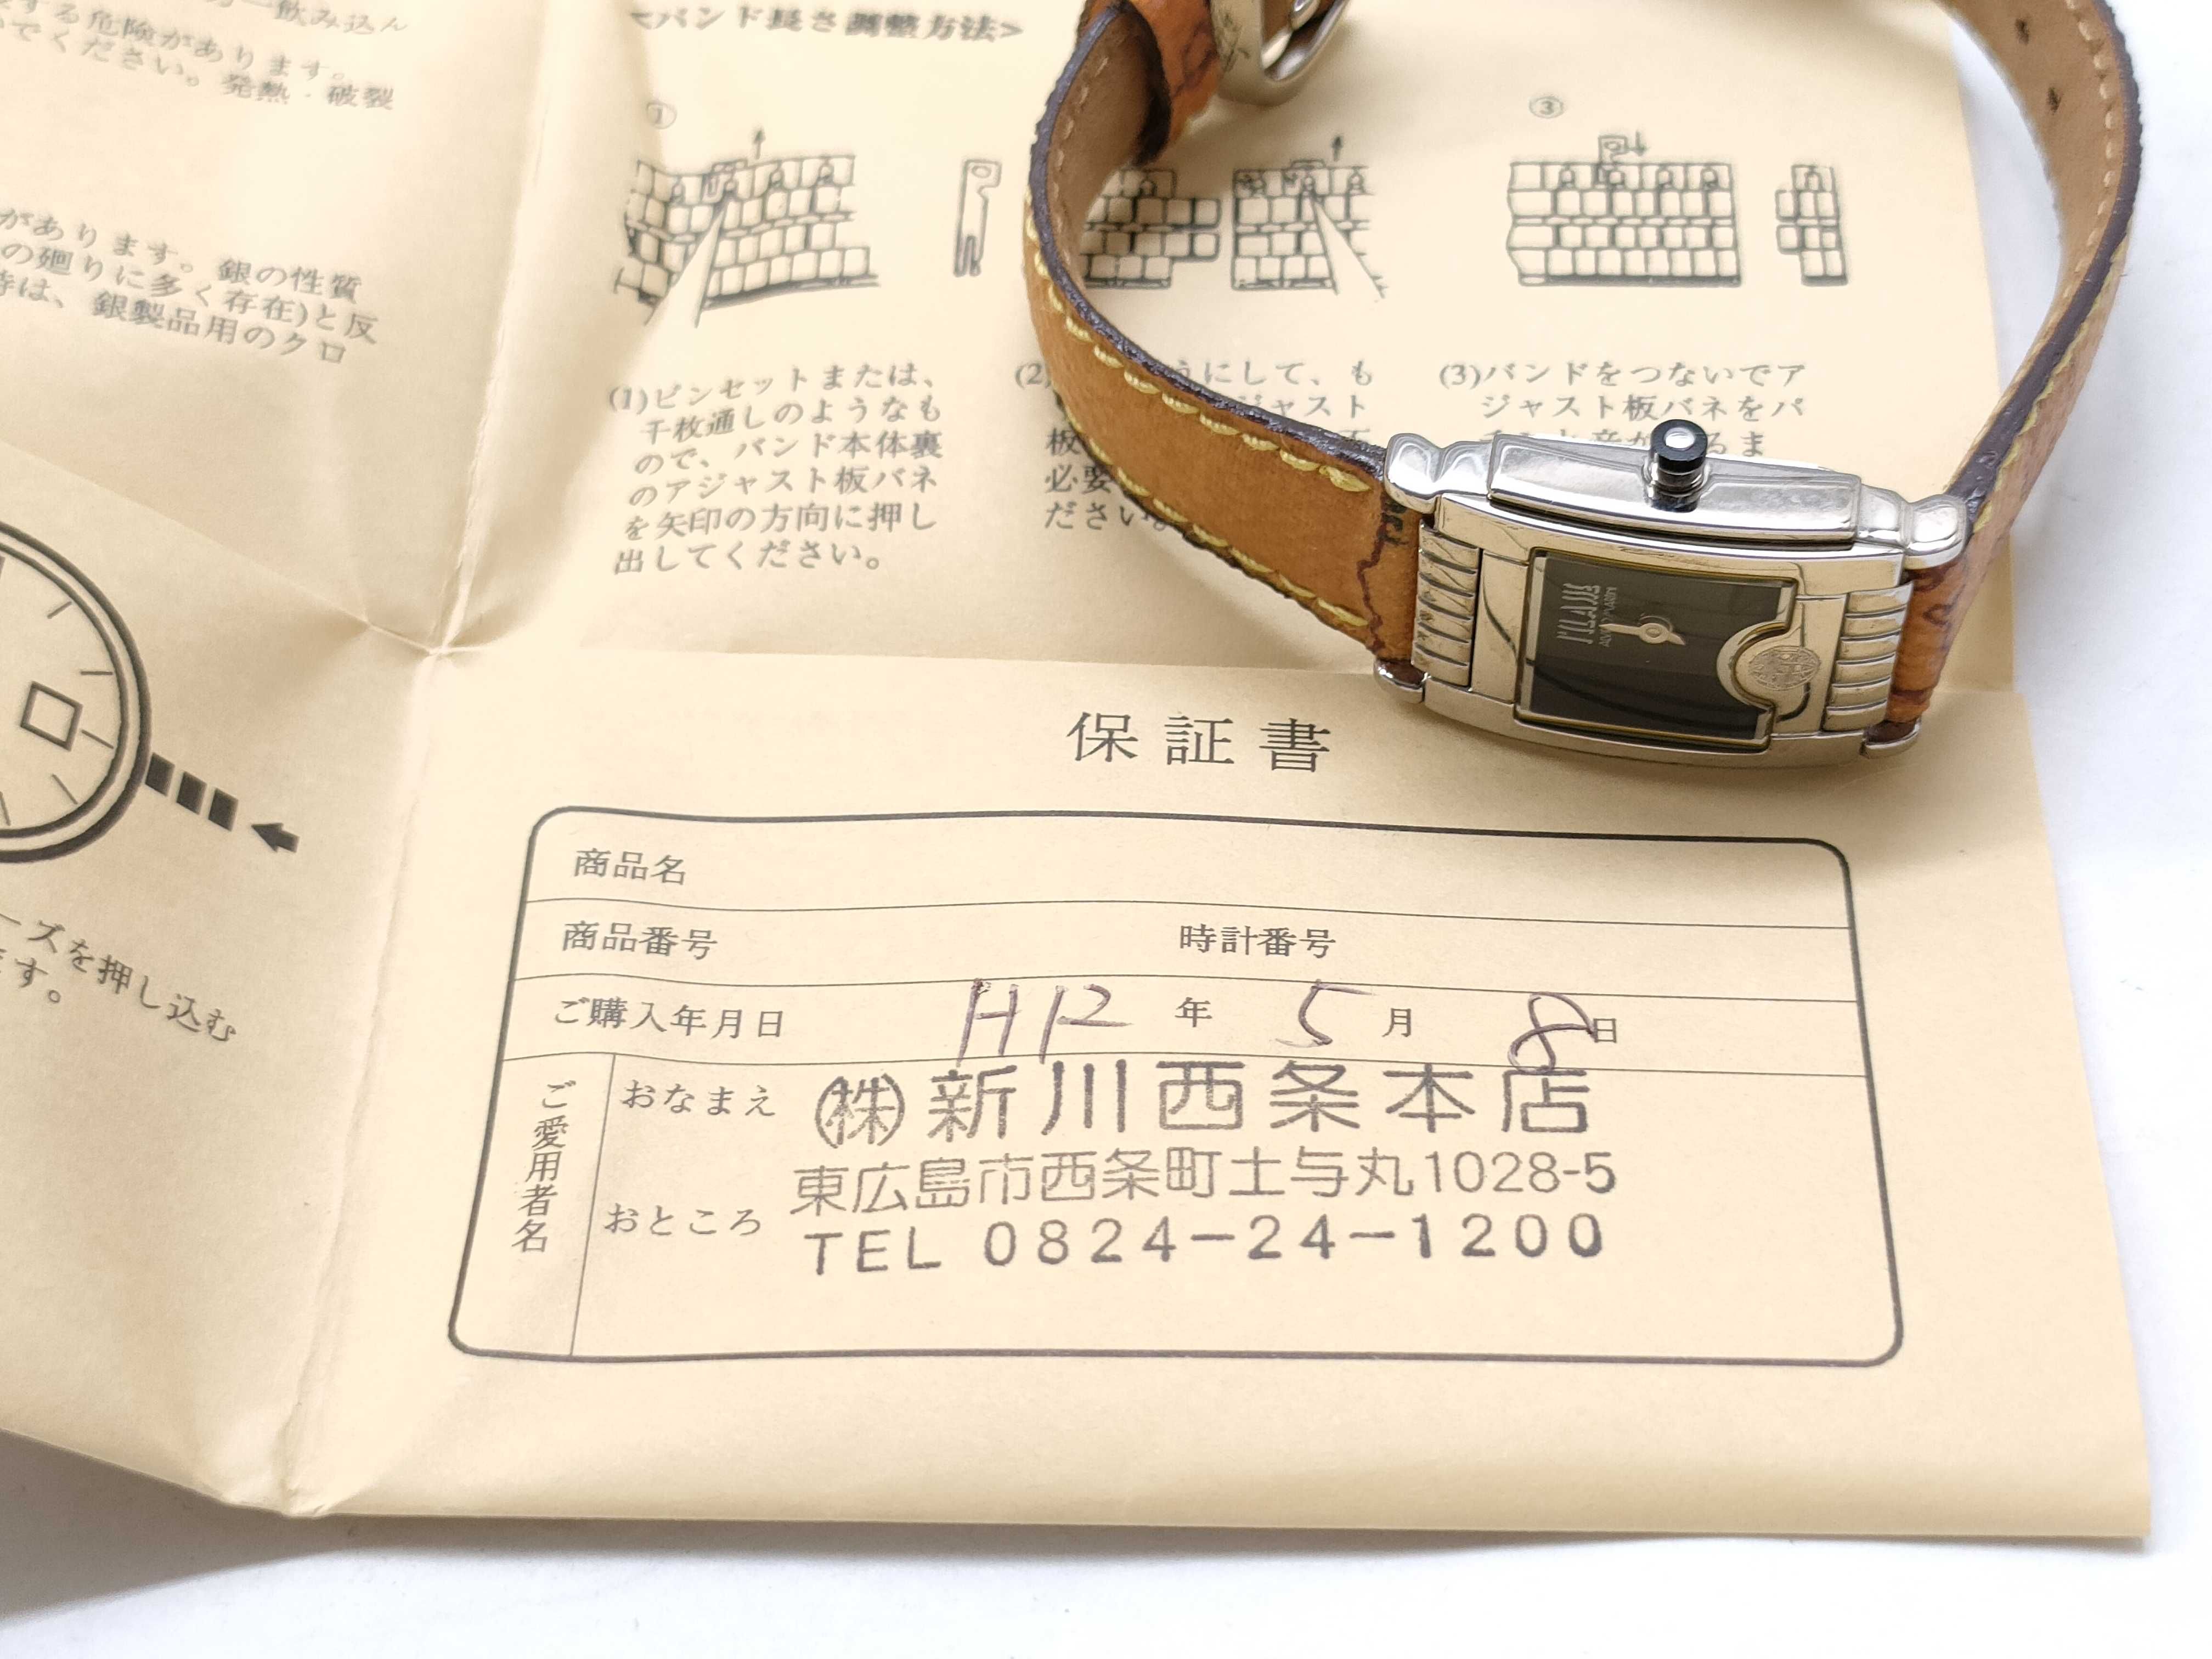 一飲み込ん
する危険があります。
いでください。発熱・破裂
があります。銀の性質
の廻りに多く存在)と反
時は、銀製品用のクロ
ーズを押し込む
ます。
<バンド長さ調整方法>
①
③
(1)ピンセットまたは、
千枚通しのようなも
ので、バンド本体裏
のアジャスト板バネ
を矢印の方向に押し
出してください。
(2)
うにして、も
ジャスト
板
必要
ださい。
(3)バンドをつないでア
ジャスト板バネをパ
チンと音が
るま
保証書
商品名
商品番号 時計番号
ご購入年月日 H12 年 5 月 8 日
ご愛用者名
おなまえ ㈱新川西条本店
東広島市西条町土与丸1028-5
おところ
TEL 0824-24-1200